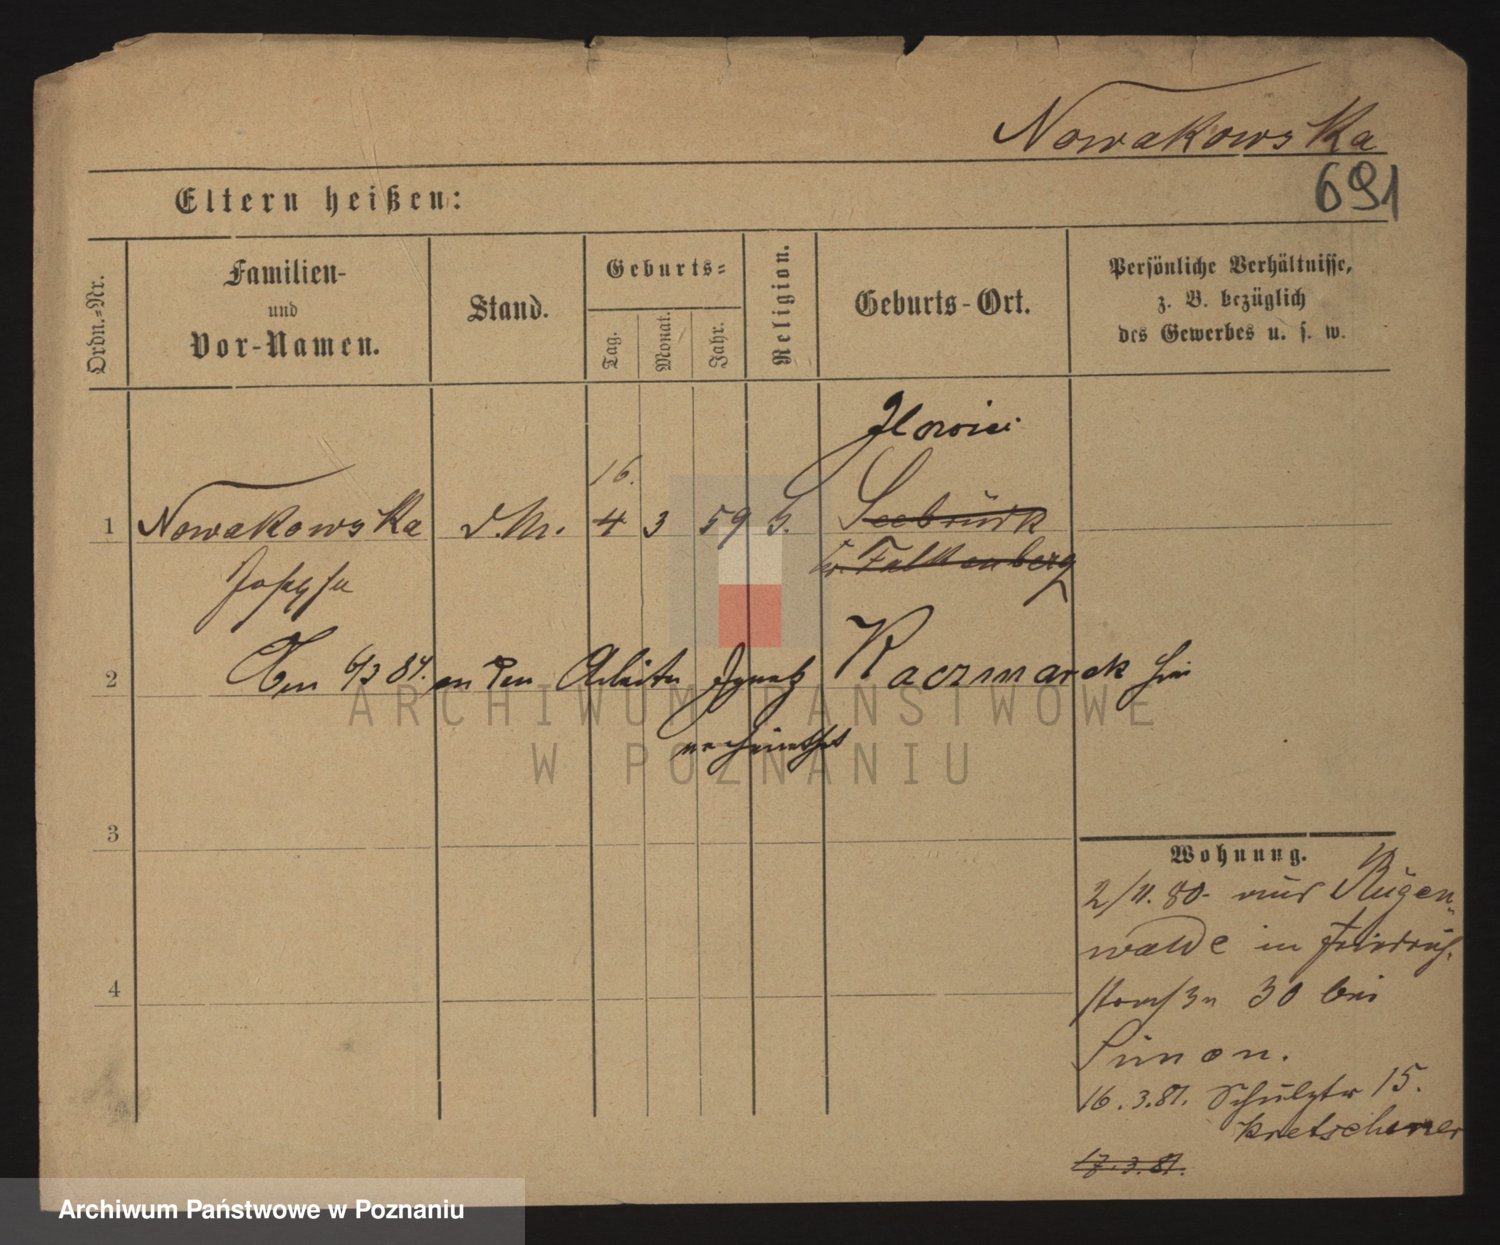 Nowakowska
691
Eltern heißen:
Ordn.-Nr.
Familien-
und
Vor-Namen.
Stand.
Geburts-
Tag.
Monat.
Jahr.
Religion.
Geburts-Ort.
Persönliche Verhältnisse,
z. B. bezüglich
des Gewerbes u. s. w.
16.
1 Nowakowska 4 3 59
Falkenberg
2 6/3 84. an den Arbeiter Ignatz Kaczmarek hier
verheirathet
ARCHIWUM PAŃSTWOWE
W POZNANIU
3
4
Wohnung.
2/11. 80. aus Rügen-
walde in Friedrich-
straße 30 bei
Simon.
16. 3. 81. Schulzstr 15.
Kretschmer
17. 3. 81.
Archiwum Państwowe w Poznaniu